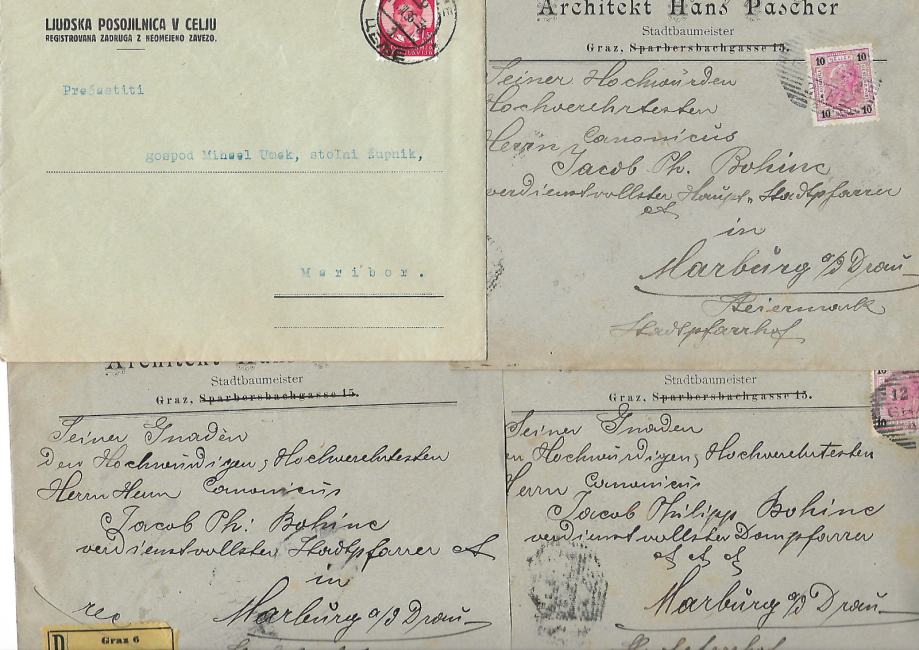 LJUDSKA POSOJILNICA V CELJU
REGISTROVANA ZADRUGA Z NEOMEJENO ZAVEZO.
Prečastiti
gospod Mihael Umek, stolni župnik,
Maribor.
Architekt Hans Pascher
Stadtbaumeister
Graz, Sparbersbachgasse 15.
10 HELLER 10
10 10
Seiner Hochwürden
Hochverehrtesten
Herrn Canonicus
Jacob Ph. Bohinc
verdienstvollster Haupt- Stadtpfarrer
et
in
Marburg a/d Drau
Steiermark
Stadtpfarrhof
Architekt Hans
Stadtbaumeister
Graz, Sparbersbachgasse 15.
Seiner Gnaden
Den Hochwürdigen, Hochverehrtesten
Herrn Herrn Canonicus
Jacob Ph: Bohinc
verdienstvollster Stadtpfarrer et
in
rec
Marburg a/d Drau
R Graz 6
Stadtbaumeister
Graz, Sparbersbachgasse 15.
12
Seiner Gnaden
n Hochwürdigen, Hochverehrtesten
Herrn Canonicus
Jacob Philipp Bohinc
verdienstvollster Dompfarrer
Marburg a/d Drau